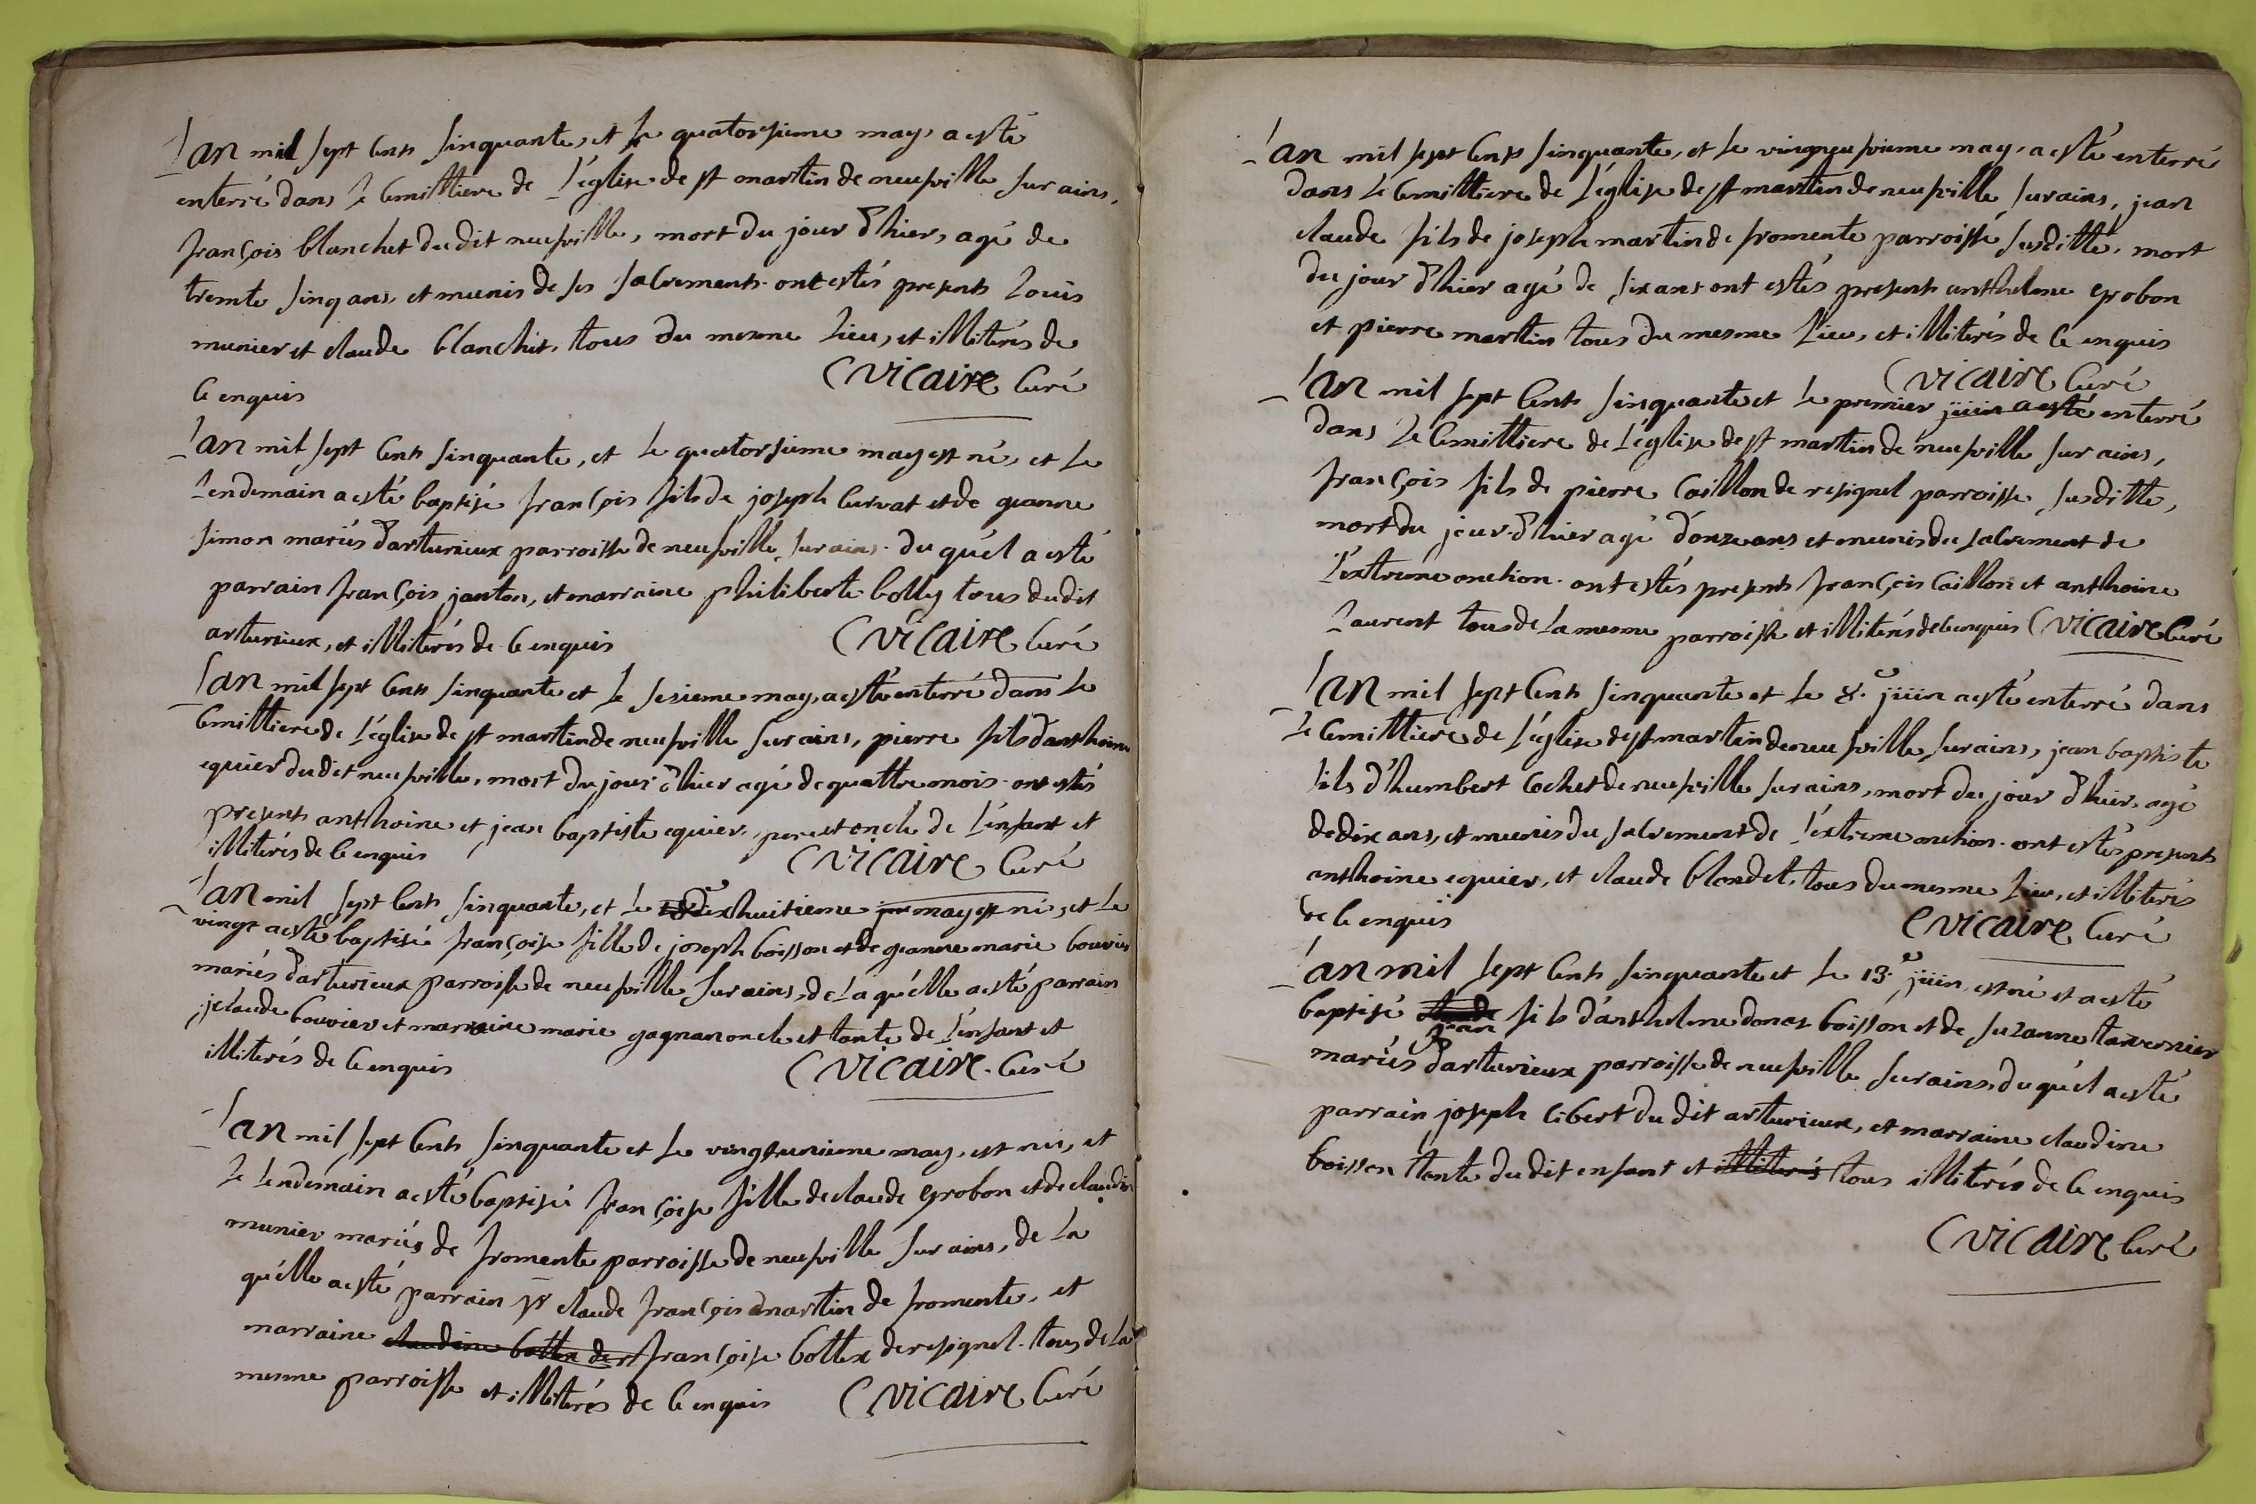 Lan mil sept cens sinquante, et le quatorsieme may, a esté
enterré dans le cemittiere de l'églize de st martin de neufville sur ains,
françois blanchet du dit neufville, mort du jour d'hier, agé de
trente sinq ans, et munis de ses sacrements. ont estés presents louis
munier et claude blanchet, tous du mesme lieu, et illiterés de
ce enquis
C vicaire curé
Lan mil sept cens sinquante, et le quatorsieme may est né, et le
lendemain a esté baptisé françois fils de joseph curvat et de geanne
simon mariés d'arturieux parroisse de neufville sur ains. du quél a esté
parrain françois janton, et marraine philiberte bolly tous du dit
arturieux, et illiterés de ce enquis C vicaire curé
Lan mil sept cens sinquante et le sesieme may, a esté enterré dans le
cemittiere de l'églize de st martin de neufville sur ains, pierre fils d'anthoine
equier du dit neufville, mort du jour d'hier agé de quattre mois. ont estés
presents anthoine et jean baptiste equier, pere et oncle de l'enfant et
illiterés de ce enquis C vicaire curé
Lan mil sept cens sinquante, et le dixhuitieme may est né, et le
vingt a esté baptisé françoise fille de joseph boisson et de geanne marie bouvier
mariés d'arturieux parroisse de neufville sur ains, de la quélle a esté parrain
claude bouvier et marraine marie gagnan oncle et tante de l'enfant et
illiterés de ce enquis C vicaire. curé
Lan mil sept cens sinquante et le vingt unieme may, est né, et
le lendemain a esté baptisé françoise fille de claude grobon et de claudine
munier mariés de fromente parroisse de neufville sur ains, de la
quélle a esté parrain claude françois martin de fromente, et
marraine claudine bottex de françoise bottex de resignel. tous de la
mesme parroisse et illiterés de ce enquis C vicaire curé
Lan mil sept cens sinquante, et le may, a esté enterré
dans le cemittiere de l'églize de st martin de neufville sur ains, jean
claude fils de joseph martin de fromente parroisse susditte, mort
du jour d'hier agé de six ans ont estés presents anthelme grobon
et pierre martin tous du mesme lieu, et illiterés de ce enquis
C vicaire curé
Lan mil sept cens sinquante et le premier jüin a esté enterré
dans le cemittiere de l'églize de st martin de neufville sur ains,
françois fils de pierre caillon de resignel parroisse susditte,
mort du jour d'hier agé d'onze ans et munis du sacrement de
l'extreme onction. ont estés presents françois caillon et anthoine
laurent tous de la mesme parroisse et illiterés de ce enquis C vicaire curé
Lan mil sept cens sinquante et le 8.e jüin a esté enterré dans
le cemittiere de l'églize de st martin de neufville sur ains, jean baptiste
fils d'humbert cochet de neufville sur ains, mort du jour d'hier, agé
de dix ans, et munis du sacrement de l'extreme onction. ont estés presents
anthoine equier, et claude blondel, tous du mesme lieu, et illiterés
de ce enquis C vicaire curé
Lan mil sept cens sinquante et le 13.e jüin, est né et a esté
baptisé claude jean fils d'anthelme donat boisson et de suzanne tavernier
mariés d'arturieux parroisse de neufville sur ains, du quél a esté
parrain joseph cibert du dit arturieux, et marraine claudine
boisson tente du dit enfant et illiterés tous illiterés de ce enquis
C vicaire curé